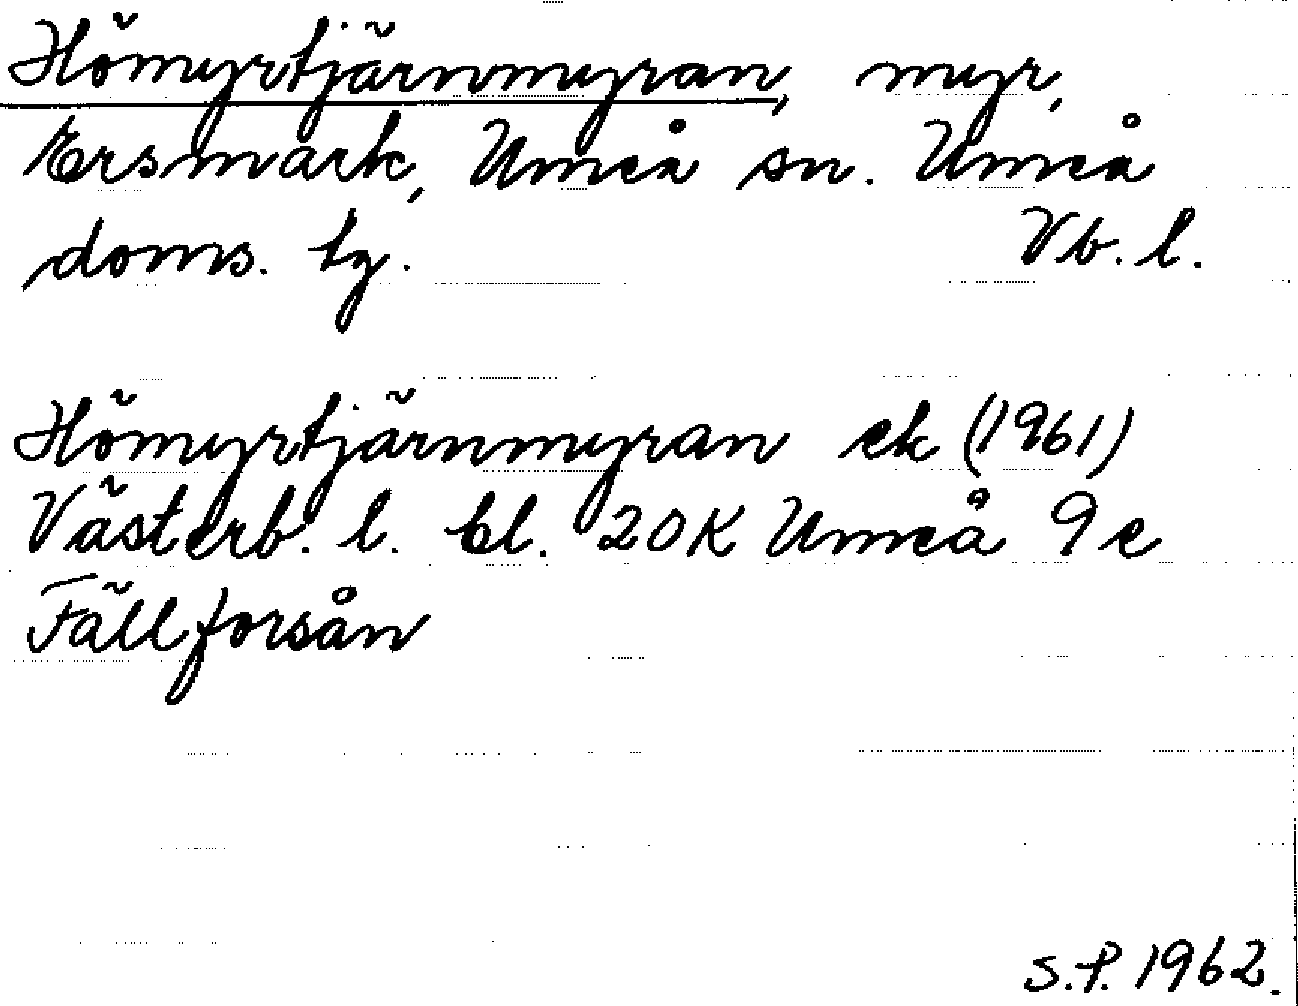 Hömyrtjärnmyran, myr,
Ersmark, Umeå sn. Umeå
doms. tg. Vb. l.
Hömyrtjärnmyran ek (1961)
Västerb. l. bl. 20K Umeå 9e
Fällforsån
S.P. 1962.